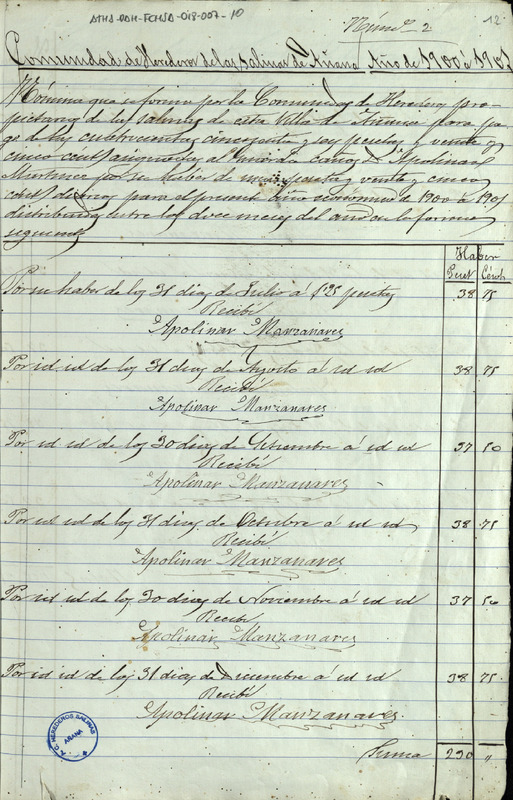 ATHA-DAH-FCHSA-018-007-10
Númº 2
12
Comunidad de Herederos de las Salinas de Añana Año de 1900 a 1901
Nómina que se forma por la Comunidad de Herederos pro-
pietarios de las Salinas de esta Villa de Añana para pa-
go de los cuatrocientos cincuenta y seis pesetas y veinte y
cinco centˢ asignadas al guarda Apolinar
por su haber de una peseta y veinte y cinco
centˢ diarios para el presente año económico de 1900 a 1901
distribuidas entre los doce meses del año en la forma
siguiente
Haber
Peset Cénts
Por su haber de los 31 días de Julio á 1'25 pesetas 38 75
Recibí
Apolinar Manzanares
Por id. id. de los 31 días de Agosto á id id 38 75
Recibí
Apolinar Manzanares
Por id id de los 30 días de Setiembre á id id 37 50
Recibí
Apolinar Manzanares
Por id id de los 31 días de Octubre á id id 38 75
Recibí
Apolinar Manzanares
Por id id de los 30 días de Noviembre á id id 37 50
Recibí
Apolinar Manzanares
Por id id de los 31 días de Diciembre á id id 38 75
Recibí
Apolinar Manzanares
Suma 230 "
A. C. HEREDEROS SALINAS
AÑANA